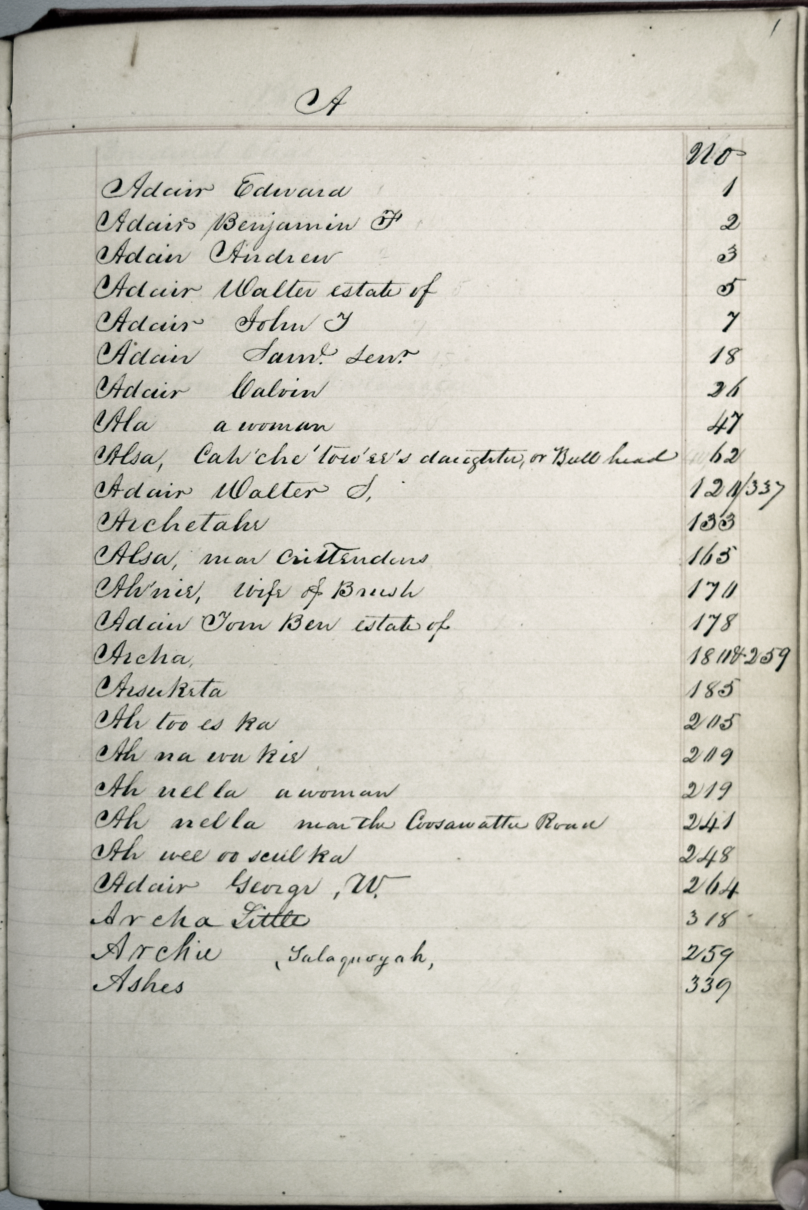 1
A
No
Adair Edward 1
Adair Benjamin F 2
Adair Andrew 3
Adair Walter estate of 5
Adair John T 7
Adair Saml. Senr 18
Adair Calvin 26
Ala a woman 47
Alsa, Cah'che'tow'ee's daughter, or Bull head 62
Adair Walter S. 120/337
Archetahe 133
Alsa, near Crittendens 165
Ah'nie, wife of Brush 170
Adair Tom Ben estate of 178
Archa, 180 & 259
Aisuketa 185
Ah too es ka 205
Ah na wa kie 209
Ah nel la a woman 219
Ah nel la near the Coosawattee Road 241
Ah wee oo scul ka 248
Adair George, W. 264
Archa Little 318
Archie (Salaquoyah, 259
Ashes 339